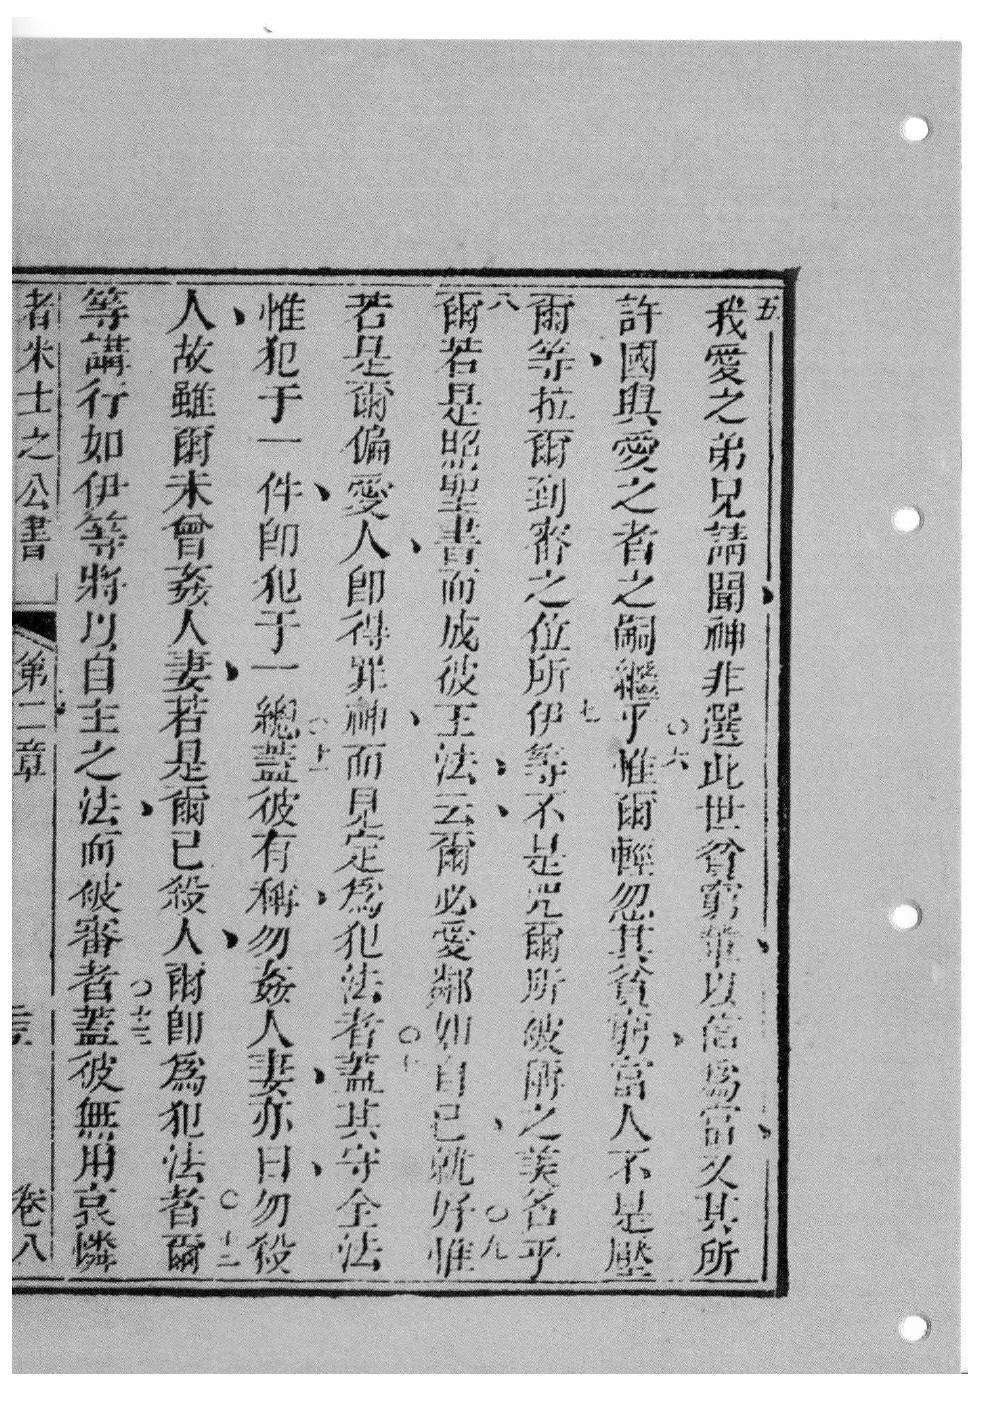 五
我愛之弟兄請聞神非選此世貧窮輩以信爲富又其所
許國與愛之者之嗣繼乎惟爾輕忽其貧窮富人不是壓
〇六
爾等拉爾到審之位所伊等不是咒爾所被稱之美名乎
七
八
爾若是照聖書而成彼王法云爾必愛鄰如自己就好惟
〇九
若是爾偏愛人卽得罪神而見定爲犯法者蓋其守全法
〇十
惟犯于一件卽犯于一總蓋彼有稱勿姦人妻亦曰勿殺
〇十一
人故雖爾未曾姦人妻若是爾已殺人爾卽爲犯法者爾
〇十二
等講行如伊等將以自主之法而彼審者蓋彼無用哀憐
〇十三
者米士之公書 第二章 卷八